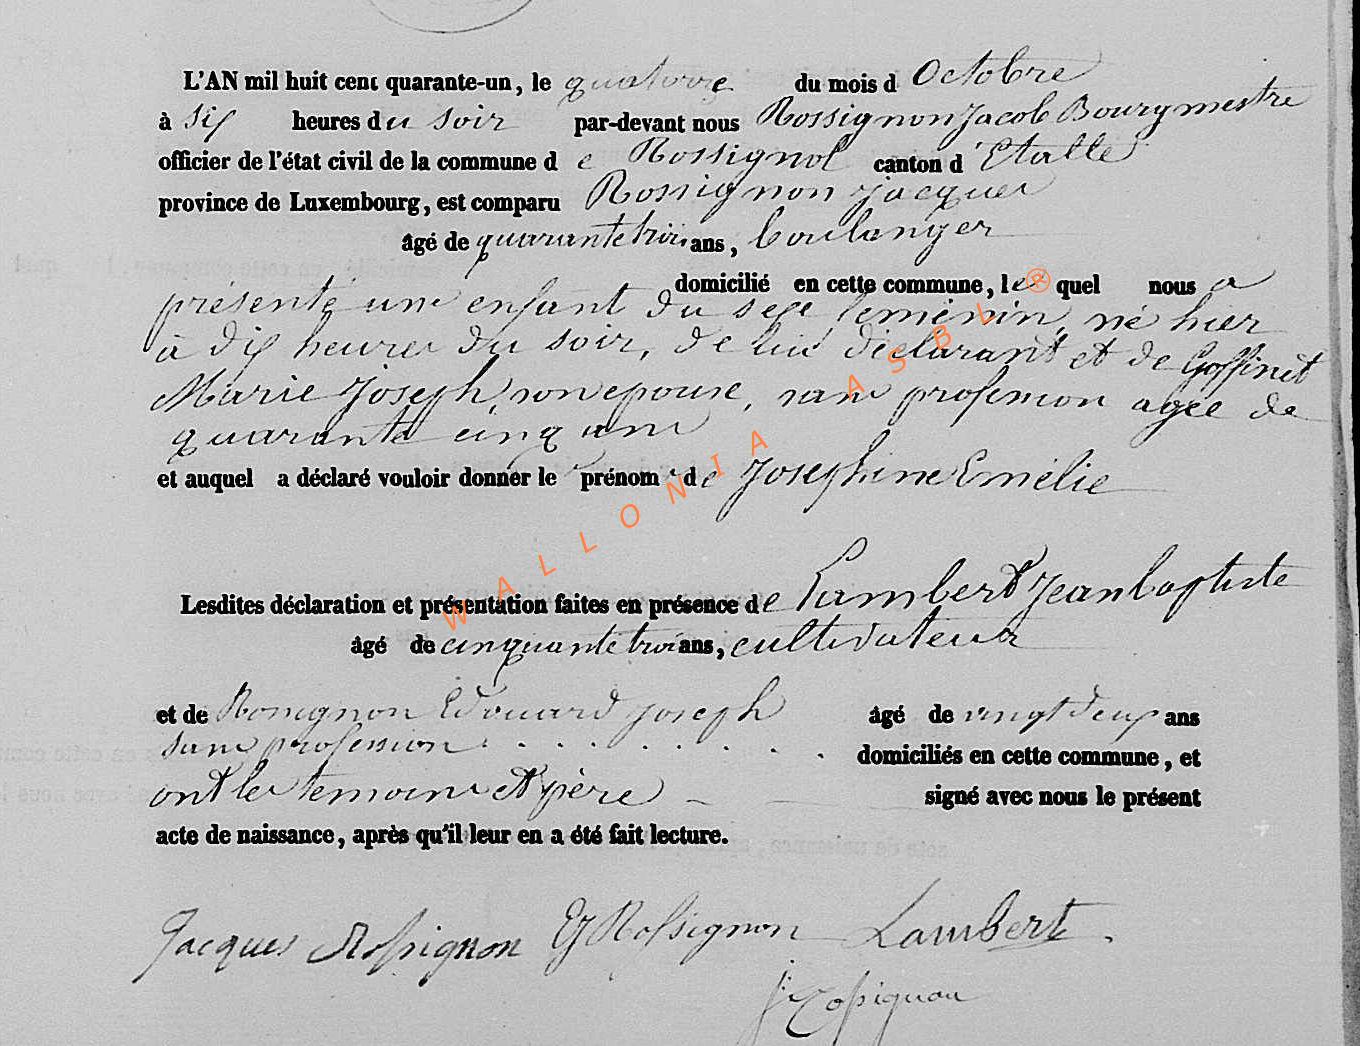 L'AN mil huit cent quarante-un, le quatorze du mois d Octobre
à six heures du soir par-devant nous Rossignon Jacob Bourgmestre
officier de l'état civil de la commune de Rossignol canton d'Etalle
province de Luxembourg, est comparu Rossignon Jacques
âgé de quarante trois ans, boulanger
domicilié en cette commune, lequel nous a
présenté un enfant du sexe feminin, né hier
à dix heures du soir, de lui déclarant et de Goffinet
Marie Joseph, son epouse, sans profession agée de
quarante cinq ans
et auquel a déclaré vouloir donner le prénom de Josephine Emélie
Lesdites déclaration et présentation faites en présence de Lambert Jean baptiste
âgé de cinquante trois ans, cultivateur
et de Rossignon Edouard joseph âgé de vingt deux ans
sans profession . . . . . . . . . domiciliés en cette commune, et
ont les temoins et père signé avec nous le présent
acte de naissance, après qu'il leur en a été fait lecture.
Jacques Rossignon EJ Rossignon Lambert.
J. Rossignon
WALLONIA ASBL ®